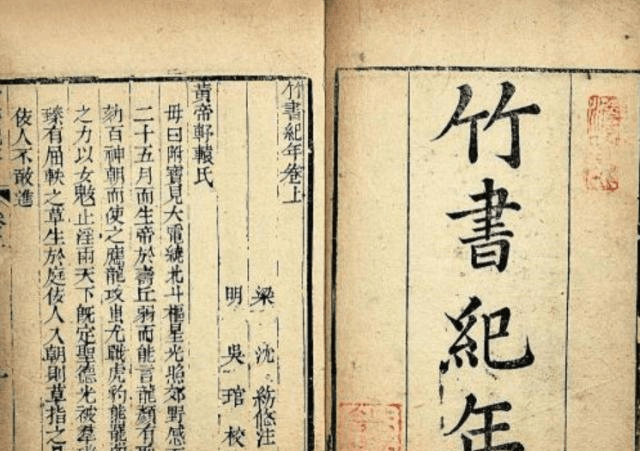 竹書紀年
竹書紀年卷上
梁 沈 約 注
明 吳 琯 校
黃帝軒轅氏
母曰附寶見大電繞北斗樞星光照郊野感
二十五月而生帝於壽丘弱而能言龍顏有聖
劾百神朝而使之應龍攻蚩尤戰虎豹熊羆
之力以女魃止淫雨天下既定聖德光被羣
臻有屈軼之草生於庭佞人入朝則草指之
佞人不敢進